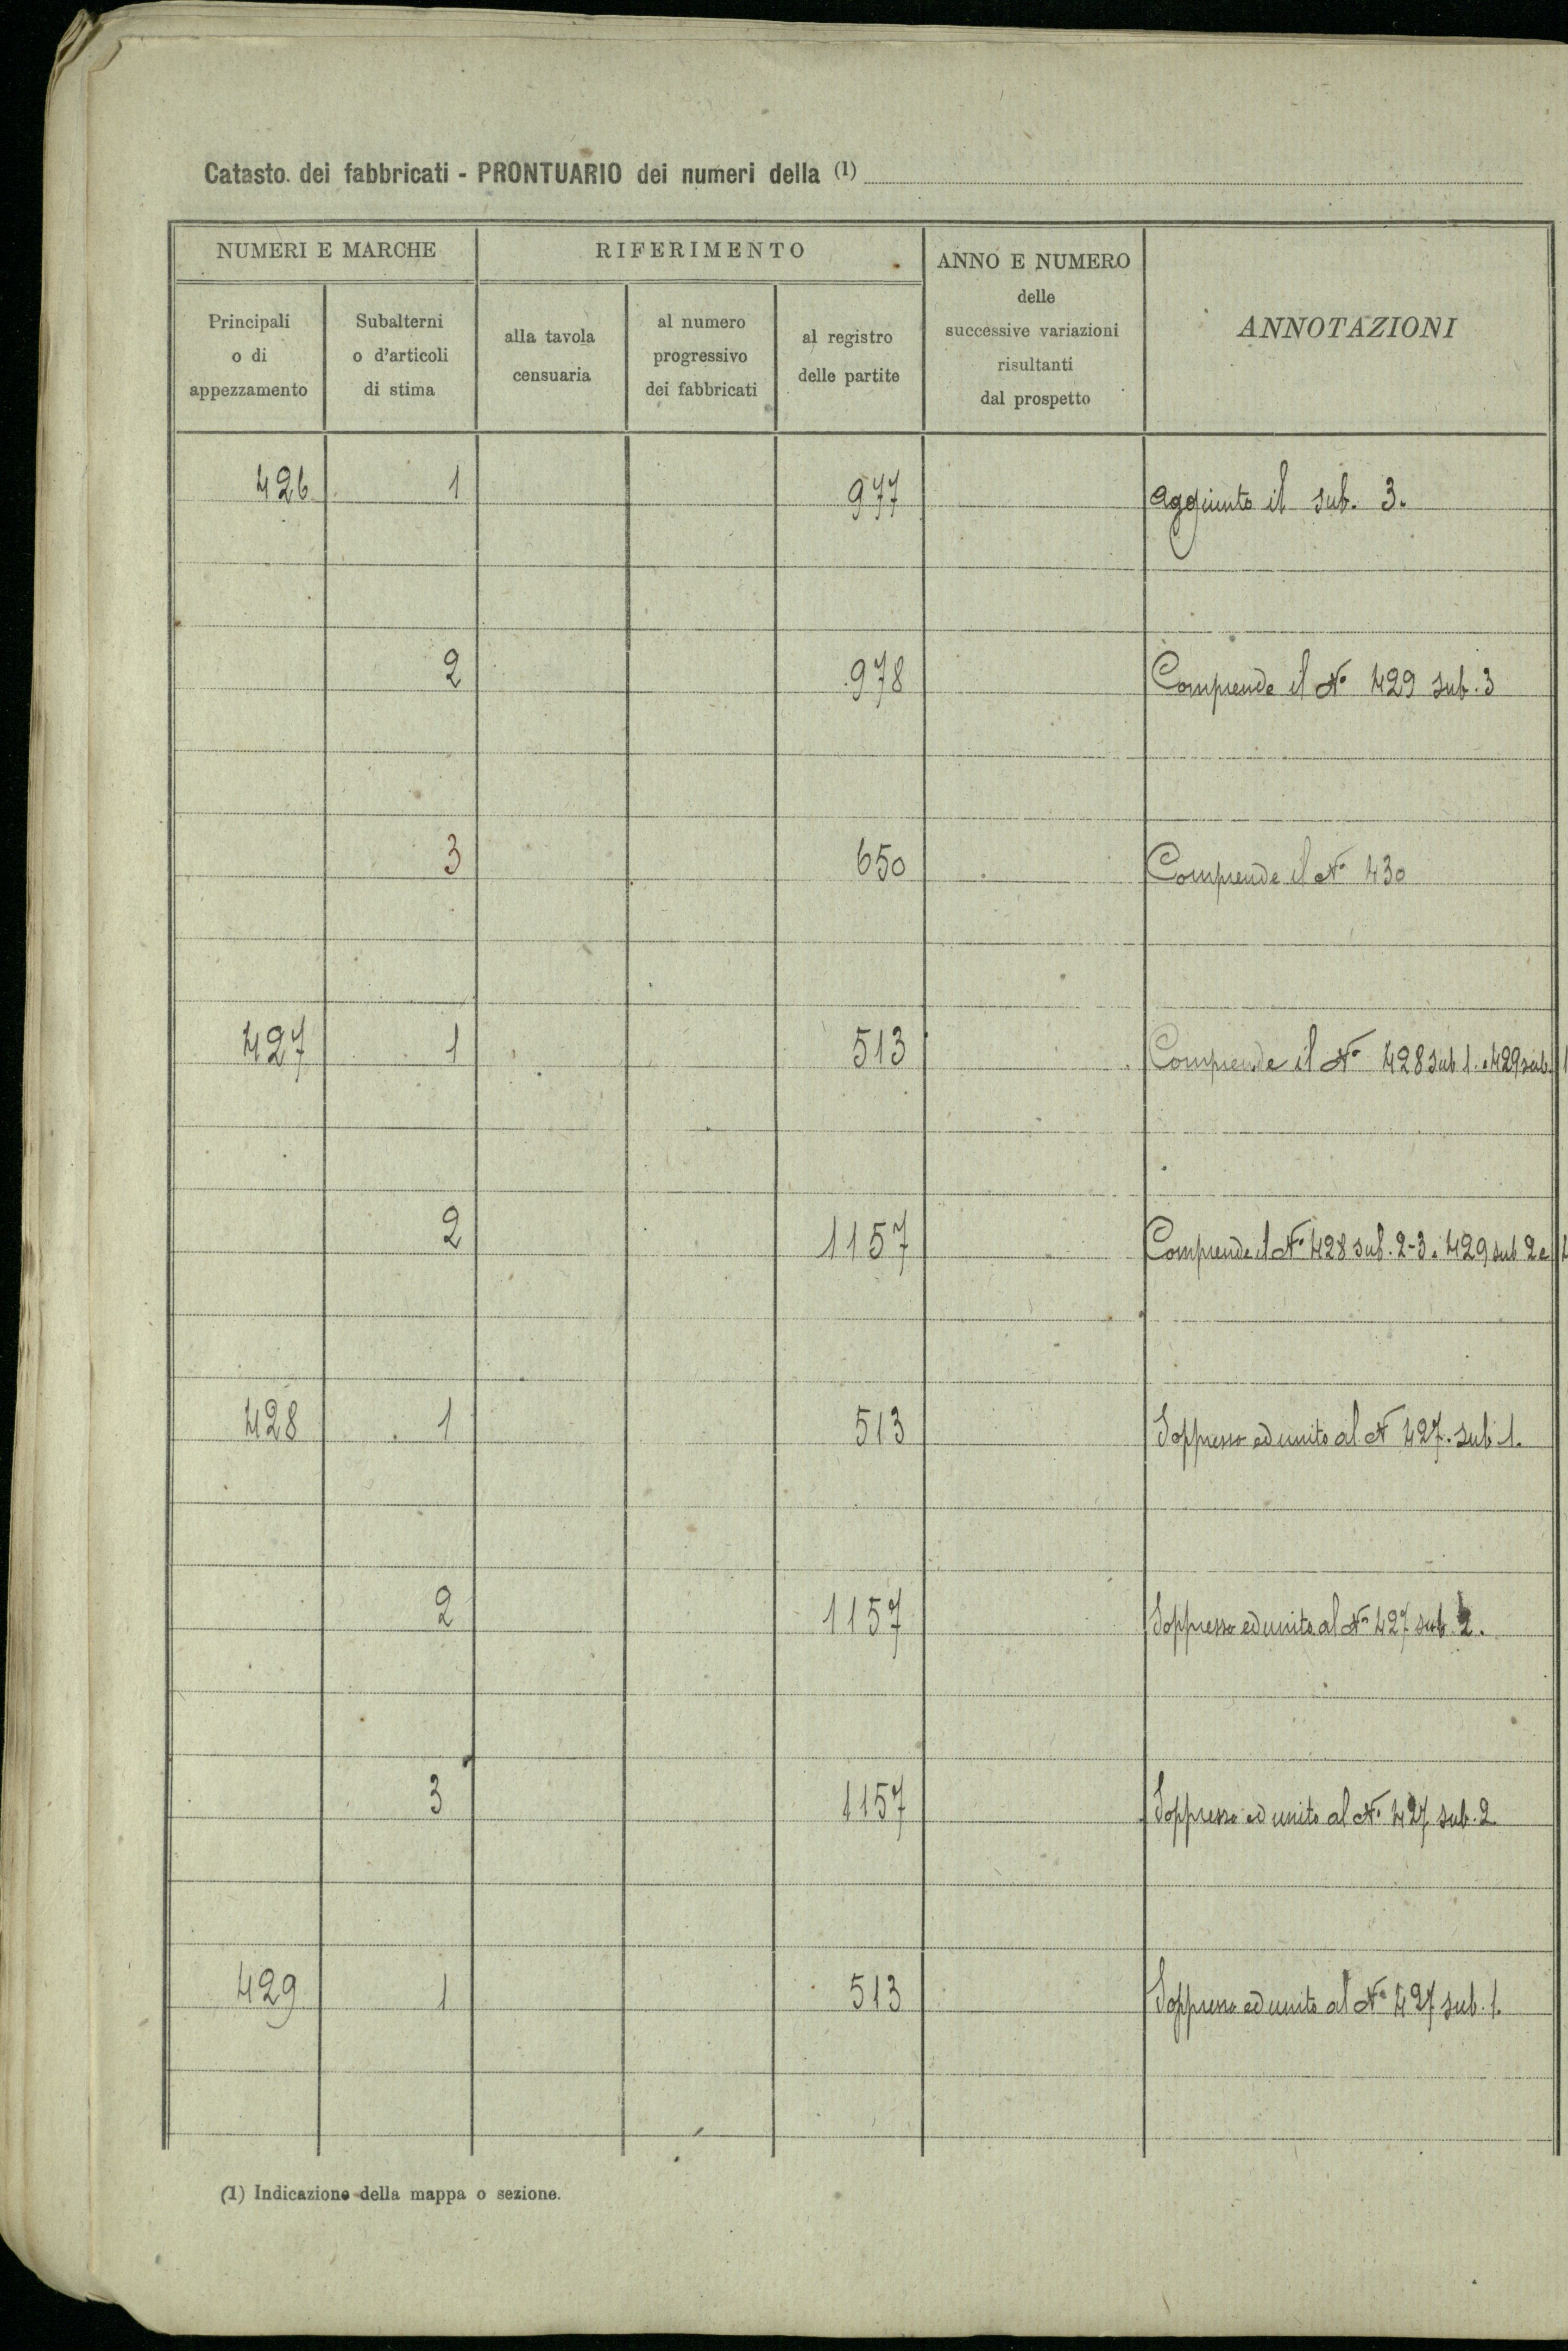 Catasto. dei fabbricati - PRONTUARIO dei numeri della (1)
NUMERI E MARCHE
RIFERIMENTO
ANNO E NUMERO
delle
successive variazioni
risultanti
dal prospetto
ANNOTAZIONI
Principali
o di
appezzamento
Subalterni
o d'articoli
di stima
alla tavola
censuaria
al numero
progressivo
dei fabbricati
al registro
delle partite
426 1 977 aggiunto il sub. 3.
2 978 Comprende il No 429 sub. 3
3 650 Comprende il No 430
427 1 513 Comprende il No 428 sub 1. e 429 sub.
2 1157 Comprende il No 428 sub. 2-3. 429 sub 2 e
428 1 513 Soppresso ed unito al N 427. sub 1.
2 1157 Soppresso ed unito al No 427 sub 2.
3 1157 Soppresso ed unito al No 427 sub. 2
429 1 513 Soppresso ed unito al No 427 sub. 1.
(1) Indicazione della mappa o sezione.